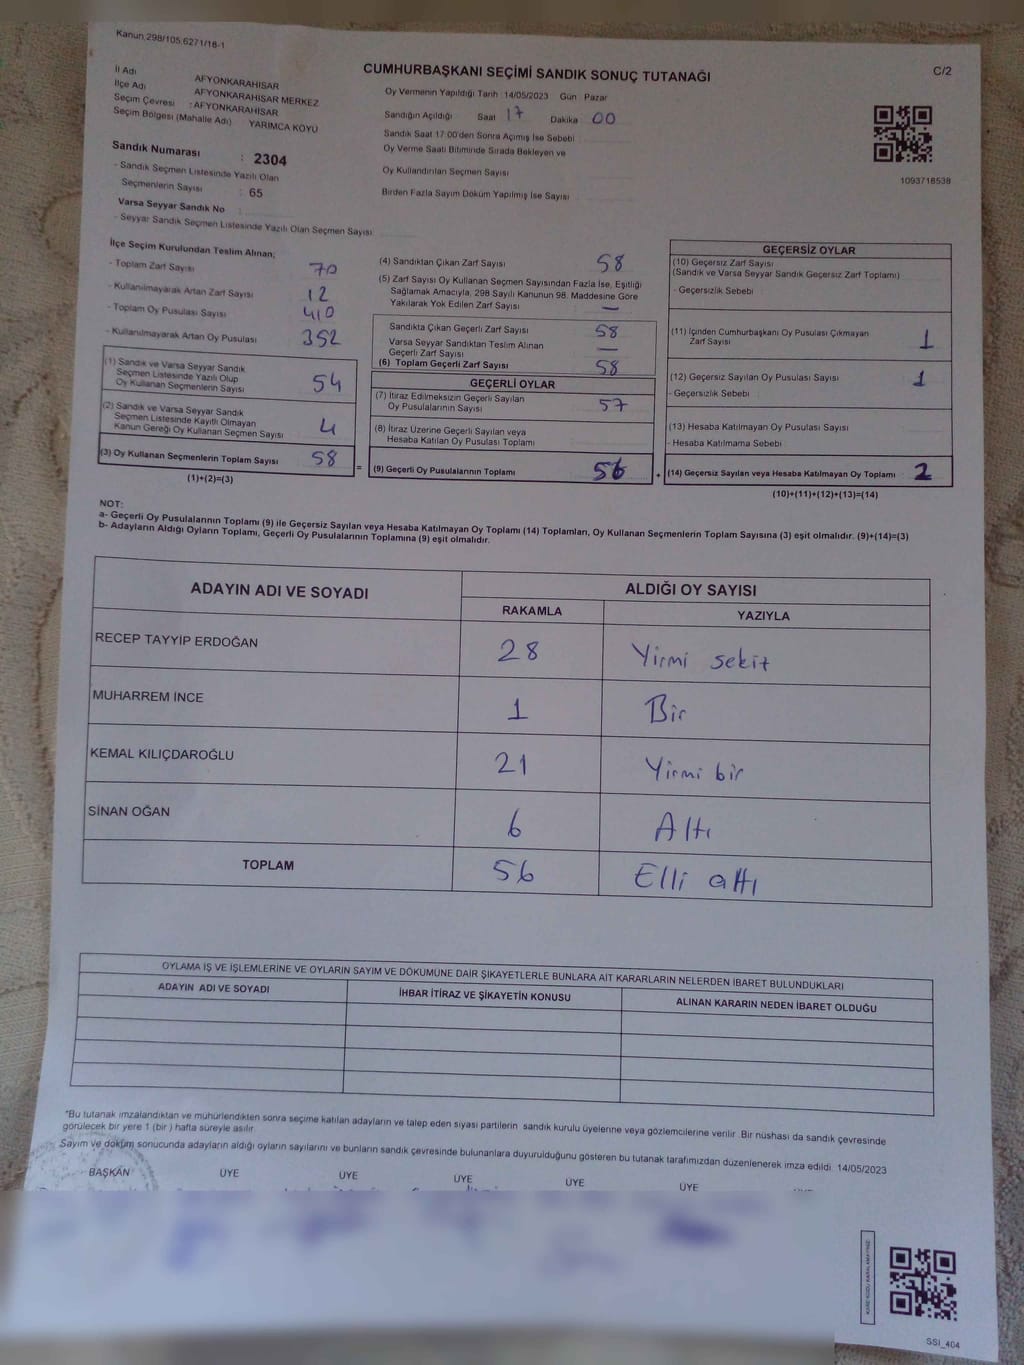 Kanun.298/105,6271/18-1
CUMHURBAŞKANI SEÇİMİ SANDIK SONUÇ TUTANAĞI
C/2
İl Adı AFYONKARAHİSAR
İlçe Adı AFYONKARAHİSAR MERKEZ
Seçim Çevresi : AFYONKARAHİSAR
Seçim Bölgesi (Mahalle Adı) YARIMCA KÖYÜ
Sandık Numarası : 2304
- Sandık Seçmen Listesinde Yazılı Olan
Seçmenlerin Sayısı : 65
Varsa Seyyar Sandık No :
- Seyyar Sandık Seçmen Listesinde Yazılı Olan Seçmen Sayısı:
Oy Vermenin Yapıldığı Tarih :14/05/2023 Gün Pazar
Sandığın Açıldığı Saat 17 Dakika 00
Sandık Saat 17:00'den Sonra Açılmış İse Sebebi :
Oy Verme Saati Bitiminde Sırada Bekleyen ve
Oy Kullandırılan Seçmen Sayısı
Birden Fazla Sayım Döküm Yapılmış İse Sayısı
1093718538
İlçe Seçim Kurulundan Teslim Alınan;
- Toplam Zarf Sayısı 70
- Kullanılmayarak Artan Zarf Sayısı 12
- Toplam Oy Pusulası Sayısı 410
- Kullanılmayarak Artan Oy Pusulası 352
(1) Sandık ve Varsa Seyyar Sandık
Seçmen Listesinde Yazılı Olup
Oy Kullanan Seçmenlerin Sayısı 54
(2) Sandık ve Varsa Seyyar Sandık
Seçmen Listesinde Kayıtlı Olmayan
Kanun Gereği Oy Kullanan Seçmen Sayısı 4
(3) Oy Kullanan Seçmenlerin Toplam Sayısı 58
(1)+(2)=(3)
=
(4) Sandıktan Çıkan Zarf Sayısı 58
(5) Zarf Sayısı Oy Kullanan Seçmen Sayısından Fazla İse, Eşitliği
Sağlamak Amacıyla, 298 Sayılı Kanunun 98. Maddesine Göre
Yakılarak Yok Edilen Zarf Sayısı —
Sandıkta Çıkan Geçerli Zarf Sayısı 58
Varsa Seyyar Sandıktan Teslim Alınan
Geçerli Zarf Sayısı —
(6) Toplam Geçerli Zarf Sayısı 58
GEÇERLİ OYLAR
(7) İtiraz Edilmeksizin Geçerli Sayılan
Oy Pusulalarının Sayısı 57
(8) İtiraz Üzerine Geçerli Sayılan veya
Hesaba Katılan Oy Pusulası Toplamı
(9) Geçerli Oy Pusulalarının Toplamı 56
+
GEÇERSİZ OYLAR
(10) Geçersiz Zarf Sayısı
(Sandık ve Varsa Seyyar Sandık Geçersiz Zarf Toplamı)
- Geçersizlik Sebebi :
(11) İçinden Cumhurbaşkanı Oy Pusulası Çıkmayan
Zarf Sayısı 1
(12) Geçersiz Sayılan Oy Pusulası Sayısı 1
- Geçersizlik Sebebi :
(13) Hesaba Katılmayan Oy Pusulası Sayısı
- Hesaba Katılmama Sebebi :
(14) Geçersiz Sayılan veya Hesaba Katılmayan Oy Toplamı 2
(10)+(11)+(12)+(13)=(14)
NOT:
a- Geçerli Oy Pusulalarının Toplamı (9) ile Geçersiz Sayılan veya Hesaba Katılmayan Oy Toplamı (14) Toplamları, Oy Kullanan Seçmenlerin Toplam Sayısına (3) eşit olmalıdır. (9)+(14)=(3)
b- Adayların Aldığı Oyların Toplamı, Geçerli Oy Pusulalarının Toplamına (9) eşit olmalıdır.
ADAYIN ADI VE SOYADI ALDIĞI OY SAYISI
RAKAMLA YAZIYLA
RECEP TAYYİP ERDOĞAN 28 Yirmi sekiz
MUHARREM İNCE 1 Bir
KEMAL KILIÇDAROĞLU 21 Yirmi bir
SİNAN OĞAN 6 Altı
TOPLAM 56 Elli altı
OYLAMA İŞ VE İŞLEMLERİNE VE OYLARIN SAYIM VE DÖKÜMÜNE DAİR ŞİKAYETLERLE BUNLARA AİT KARARLARIN NELERDEN İBARET BULUNDUKLARI
ADAYIN ADI VE SOYADI İHBAR İTİRAZ VE ŞİKAYETİN KONUSU ALINAN KARARIN NEDEN İBARET OLDUĞU
*Bu tutanak imzalandıktan ve mühürlendikten sonra seçime katılan adayların ve talep eden siyasi partilerin sandık kurulu üyelerine veya gözlemcilerine verilir. Bir nüshası da sandık çevresinde
görülecek bir yere 1 (bir) hafta süreyle asılır.
Sayım ve döküm sonucunda adayların aldığı oyların sayılarını ve bunların sandık çevresinde bulunanlara duyurulduğunu gösteren bu tutanak tarafımızdan düzenlenerek imza edildi. 14/05/2023
BAŞKAN ÜYE ÜYE ÜYE ÜYE ÜYE
KARE KODU KARALAMAYINIZ
SSI_404